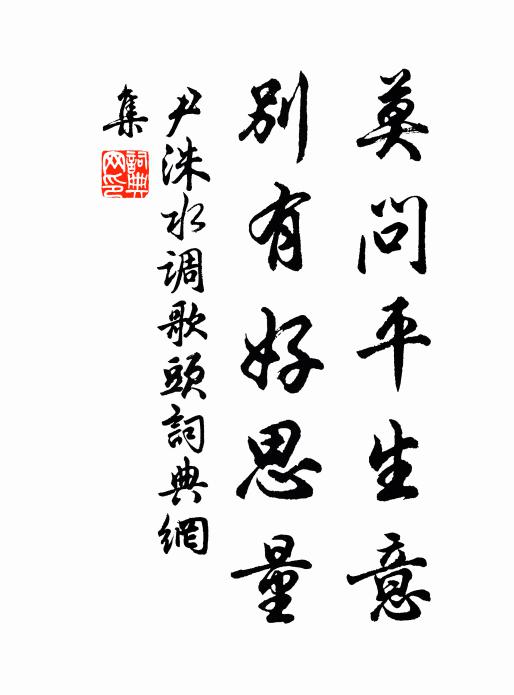 莫问平生意
别有好思量
尹洙水调歌頭詞典網
集
詞典网印